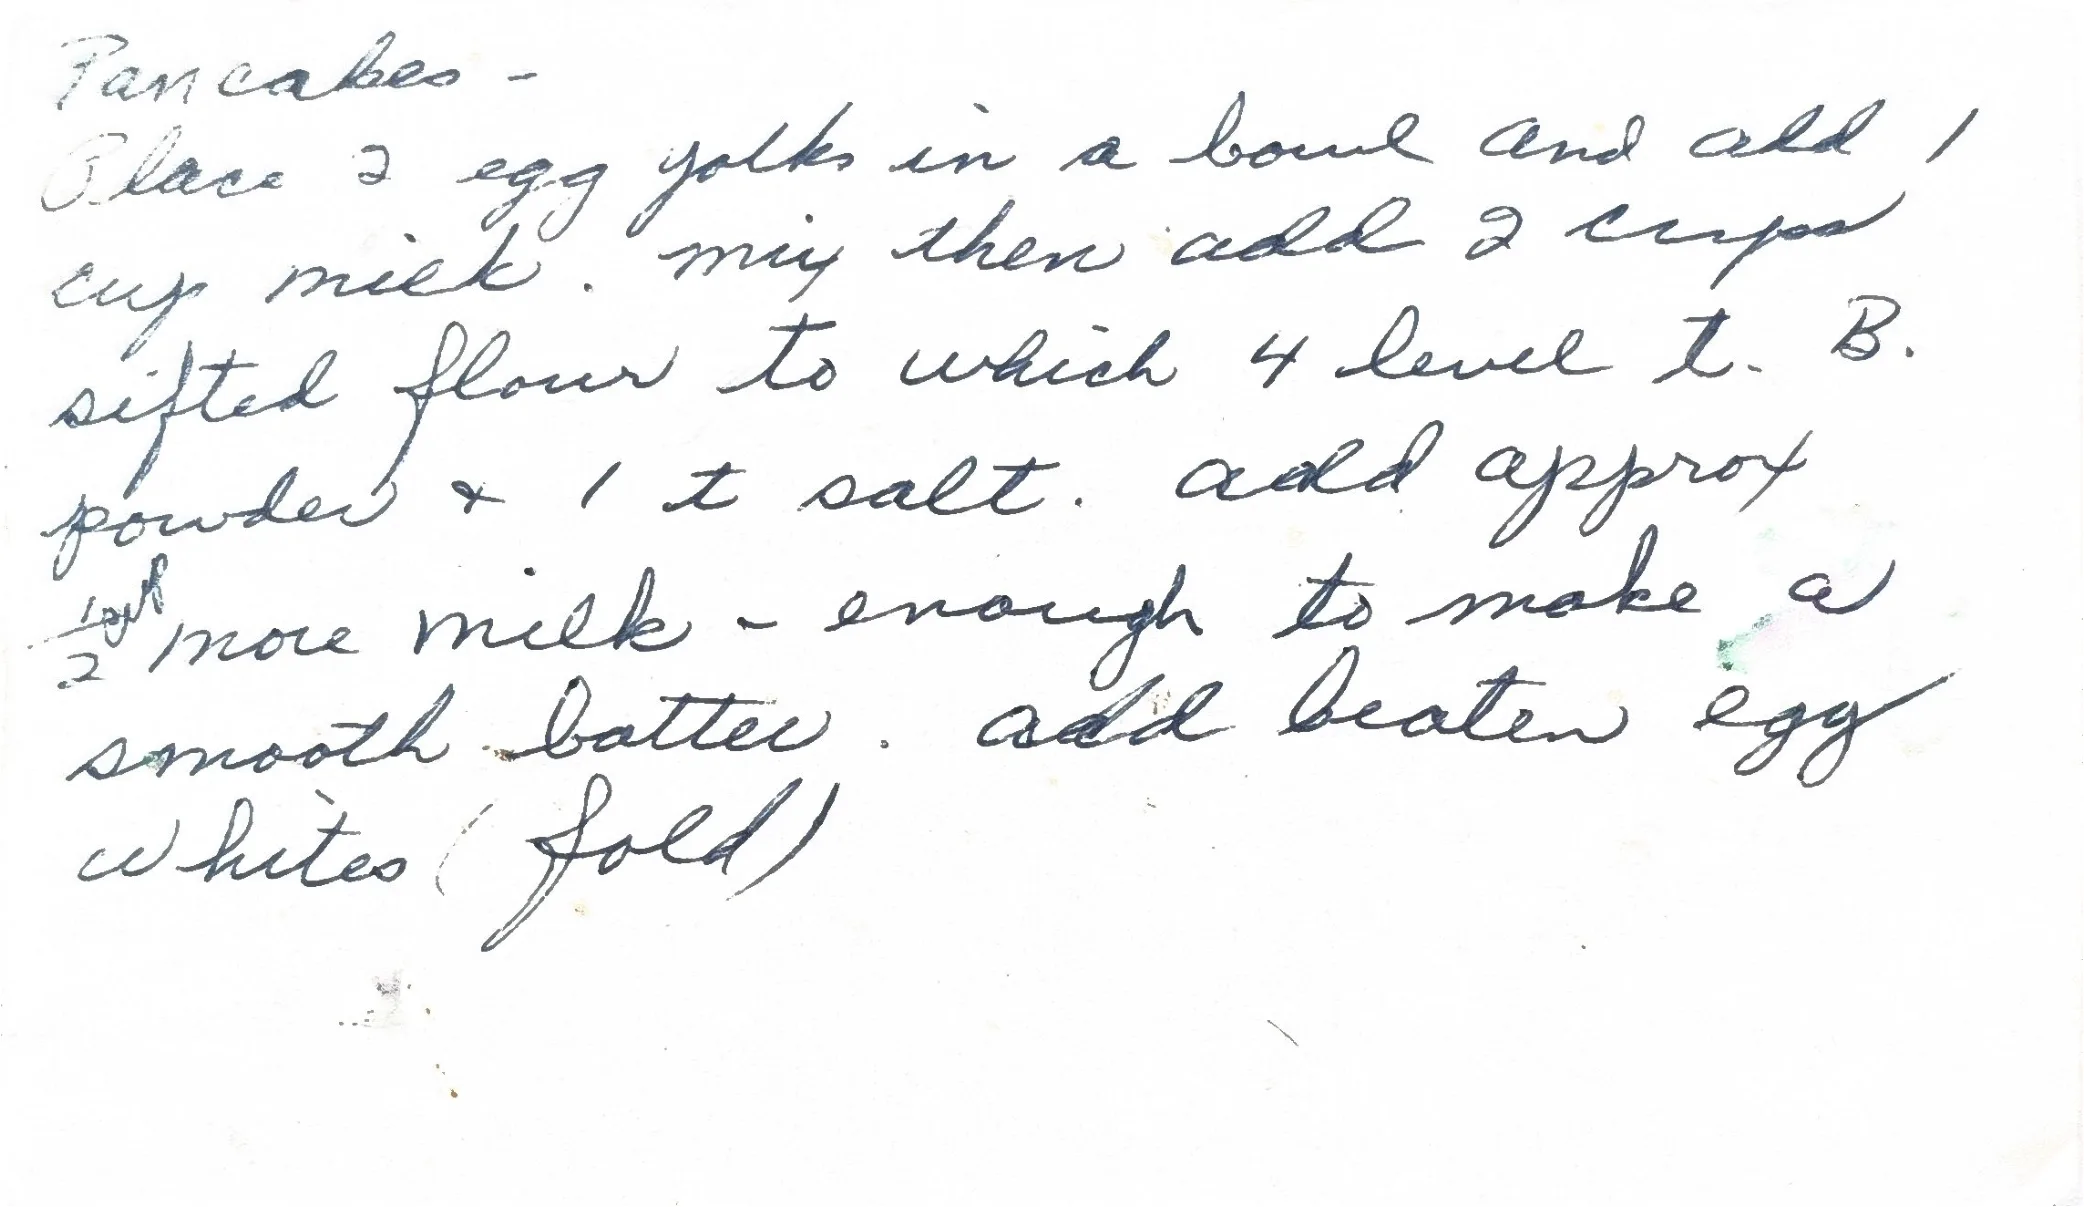 Pancakes -
Place 2 egg yolks in a bowl and add 1
cup milk. mix then add 2 cups
sifted flour to which 4 level t. B.
powder & 1 t salt. add approx
1/2 more milk - enough to make a
smooth batter. add beaten egg
whites (fold)